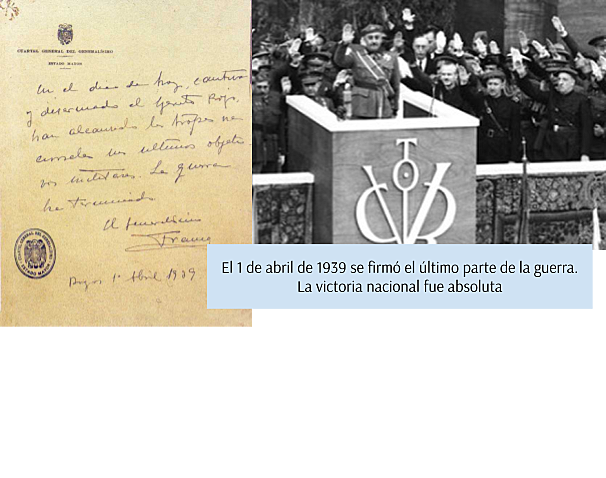 CUARTEL GENERAL DEL GENERALÍSIMO
ESTADO MAYOR
En el dia de hoy, cautivo
y desarmado el Ejercito Rojo,
han alcanzado las tropas na-
cionales sus ultimos objeti-
vos militares. La guerra
ha terminado.
El Generalisimo
Franco
Burgos 1º Abril 1939
VICTOR
El 1 de abril de 1939 se firmó el último parte de la guerra.
La victoria nacional fue absoluta